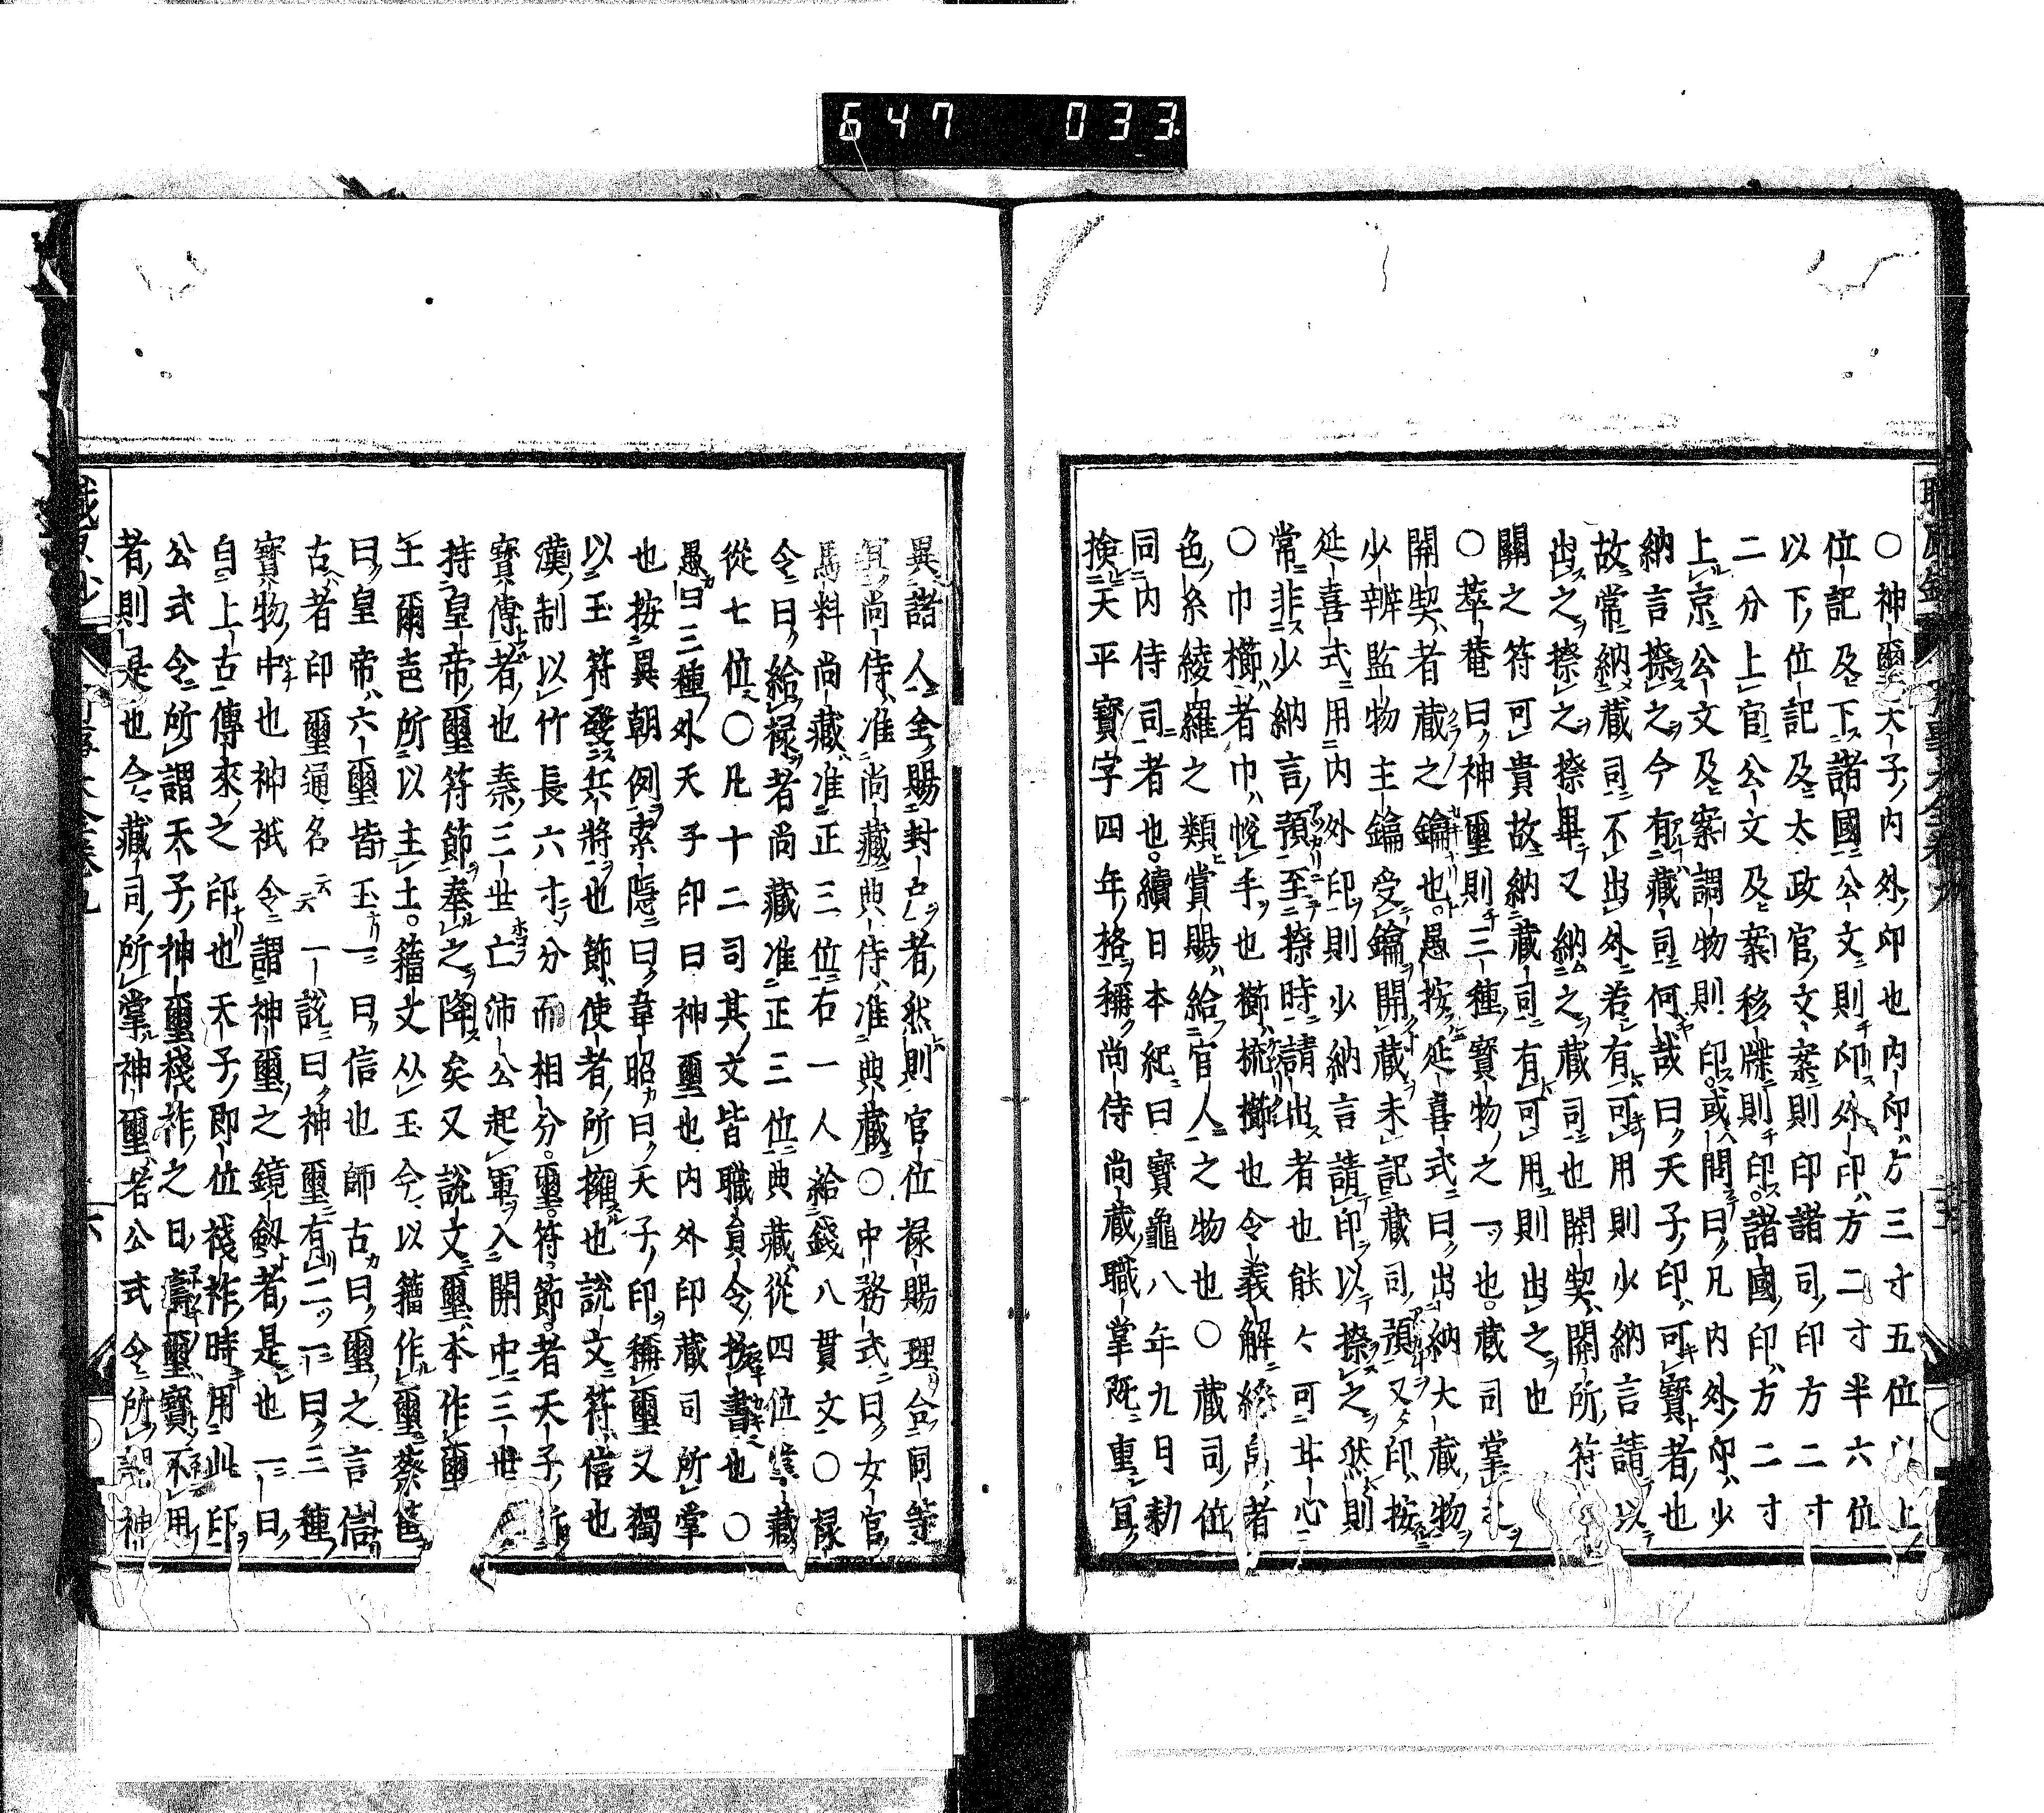 647 033
○神璽天子內外印也內印方三寸五位以上
位記及下諸國公文則印外印方二寸半六位
以下位記及太政官文案則印諸司印方二寸
二分上官公文及案移牒則印諸國印方二寸
上京公文及案調物則印或問曰凡內外印少
納言捺之今有藏司何哉曰天子印可寶者也
故常納藏司不出外若有可用則少納言請以
出之捺之捺畢又納之藏司也開契開所符
關之符可貴故納藏司有可用則出之也
○萃菴曰神璽則三種寶物之一也藏司掌之
開契者藏之鑰也愚按延喜式曰出納大藏物
少辨監物主鑰受鑰開藏未記藏司預又印按
延喜式用內外印則少納言請印以捺之然則
常非少納言預至捺時請出者也能々可甘心
○巾櫛者巾帨手也櫛梳櫛也令義解綵帛者
色糸綾羅之類賞賜給官人之物也○藏司位
同內侍司者也續日本紀曰寶龜八年九月勅
撿天平寶字四年格稱尚侍尚藏職掌既重宜
異諸人全賜封戶者然則官位祿賜理合同等
宜尚侍准尚藏典侍准典藏○中務式曰女官
馬料尚藏准正三位右一人給錢八貫文○祿
令曰給祿者尚藏准正三位典藏從四位掌藏
從七位○凡十二司其文皆職員令拔書也○
愚曰三種外天子印曰神璽也內外印藏司所掌
也按異朝例索隱曰韋昭曰天子印稱璽又獨
以玉符發兵將也節使者所擁也說文符信也
漢制以竹長六寸分而相分璽符節者天子所
寶傳者也秦三世亡沛公起軍入關中三世
持皇帝璽符節奉之降矣又說文璽本作壐
王爾㐭所以主土籀文从玉今以籀作璽蔡邕
曰皇帝六璽皆玉一曰信也師古曰璽之言信
古者印璽通名云云一說曰神璽有二一曰三種
寶物中也神祇令謂神璽之鏡劔者是也一曰
自上古傳來之印也天子即位踐祚時用此印
公式令所謂天子神璽踐祚之日壽璽寶不用
者則是也今藏司所掌神璽者公式令所謂神